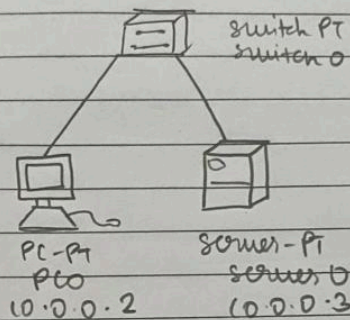 switch PT
switch 0
PC-PT
PC0
10.0.0.2
server-PT
server 0
10.0.0.3